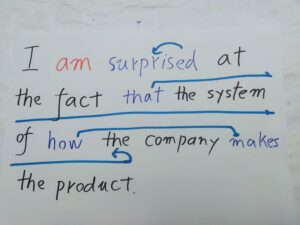 I am surprised at
the fact that the system
of how the company makes
the product.